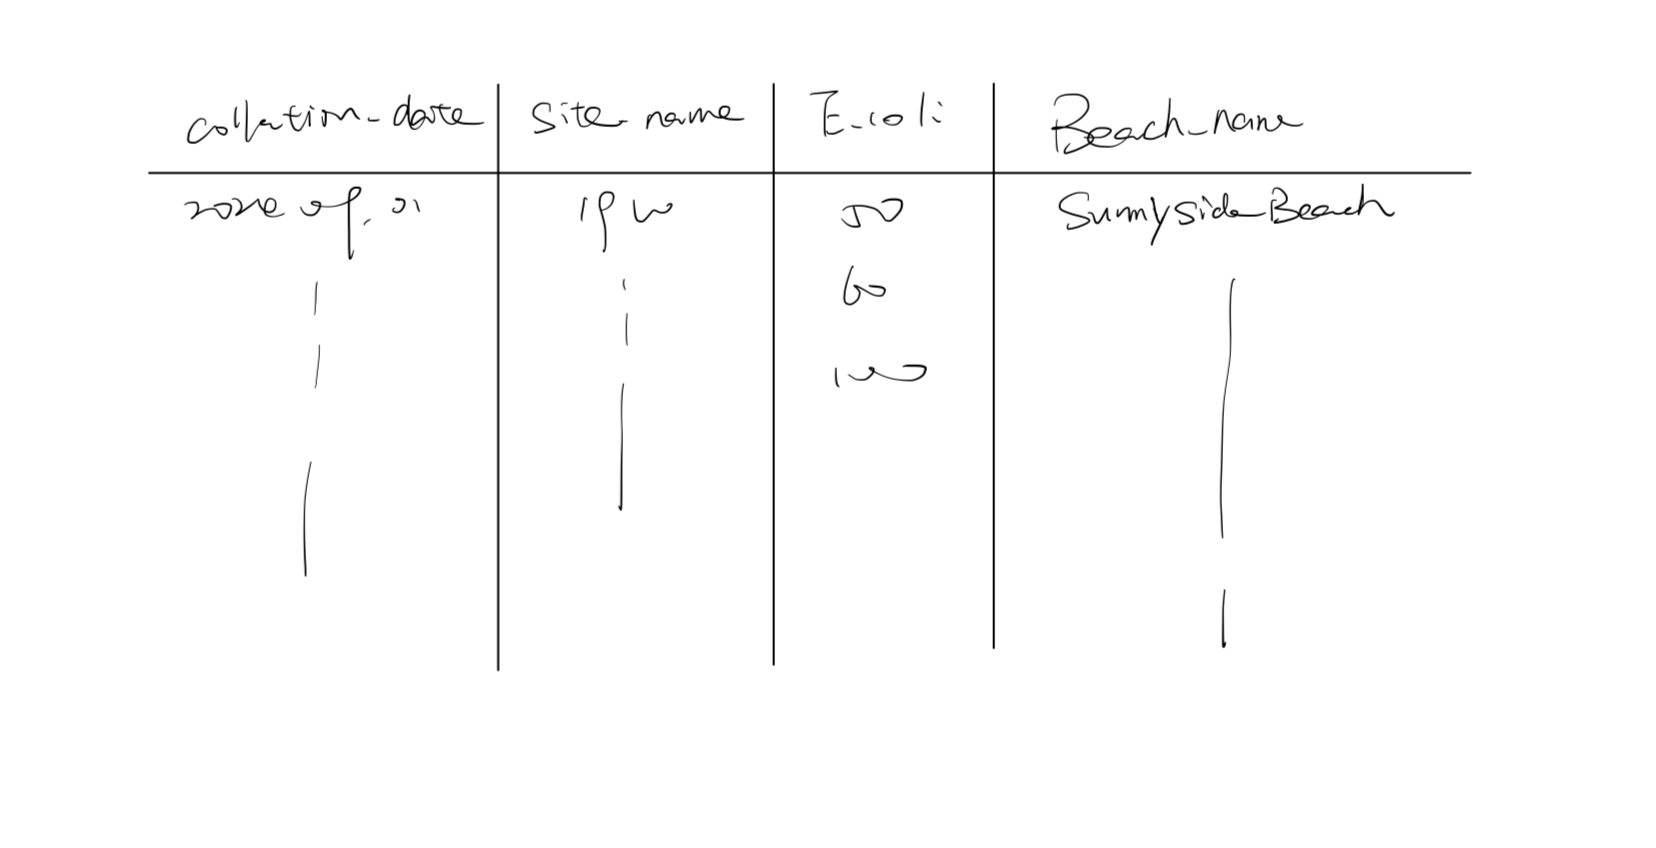 collection_date Site_name E_coli Beach_name
19W 50 SunnysideBeach
60
100